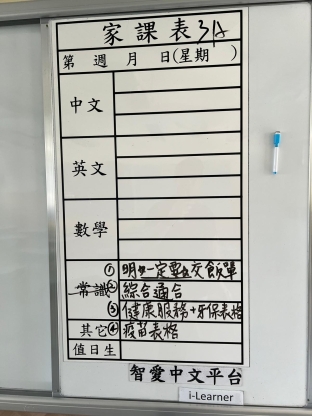 家課表 3A
第 週 月 日(星期 )
中文
英文
數學
① 明天一定要交飯單
常識 ② 綜合適合
③ 健康服務+牙保表格
其它 ④ 疫苗表格
值日生
智愛中文平台
i-Learner